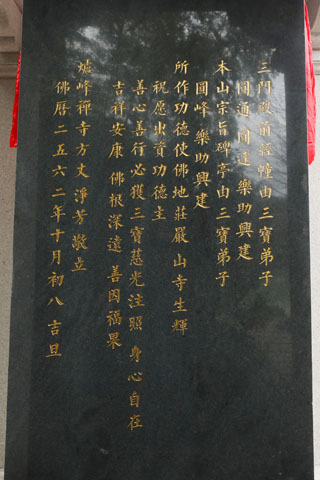 三門殿前經幢由三寶弟子
圓通 圓達 樂助興建
本山宗旨碑亭由三寶弟子
圓峰 樂助興建
所作功德使佛地莊嚴 山寺生輝
祝愿出資功德主
善心善行必獲三寶慈光注照 身心自在
吉祥安康 佛根深遠 善因福果
爐峰禪寺方丈淨芳敬立
佛曆二五六二年十月初八 吉旦